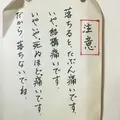 注意
落ちる たぶん痛いです。
いや、結構痛いです。
いやいや、死ぬほど痛いです。
だから 落ちないでね。